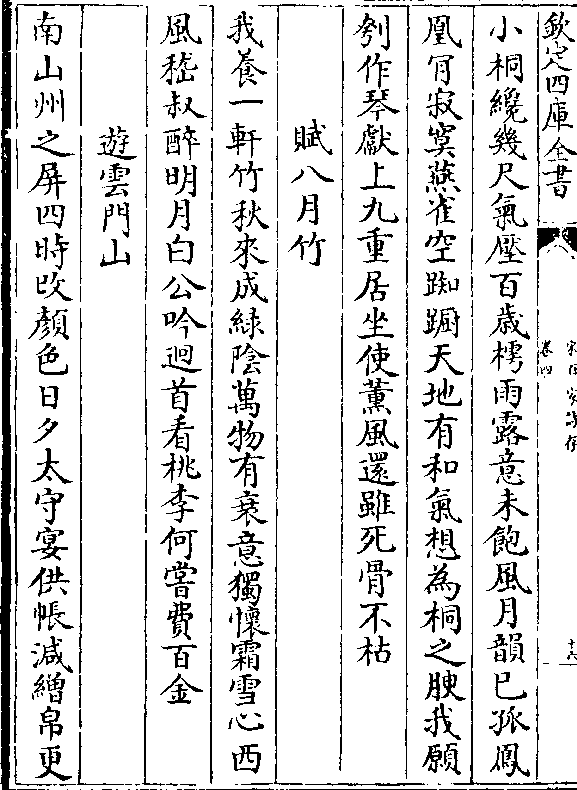 欽定四庫全書
卷四
小桐纔幾尺氣壓百歳樗雨露意未飽風月韻已孤鳳
凰肎寂寞燕雀空踟蹰天地有和氣想為桐之腴我願
刳作琴獻上九重居坐使薰風還雖死骨不枯
賦八月竹
我養一軒竹秋來成緑陰萬物有衰意獨懷霜雪心西
風嵇叔醉明月白公吟迴首看桃李何嘗費百金
遊雲門山
南山州之屏四時改顏色日夕太守宴供帳減繒帛更